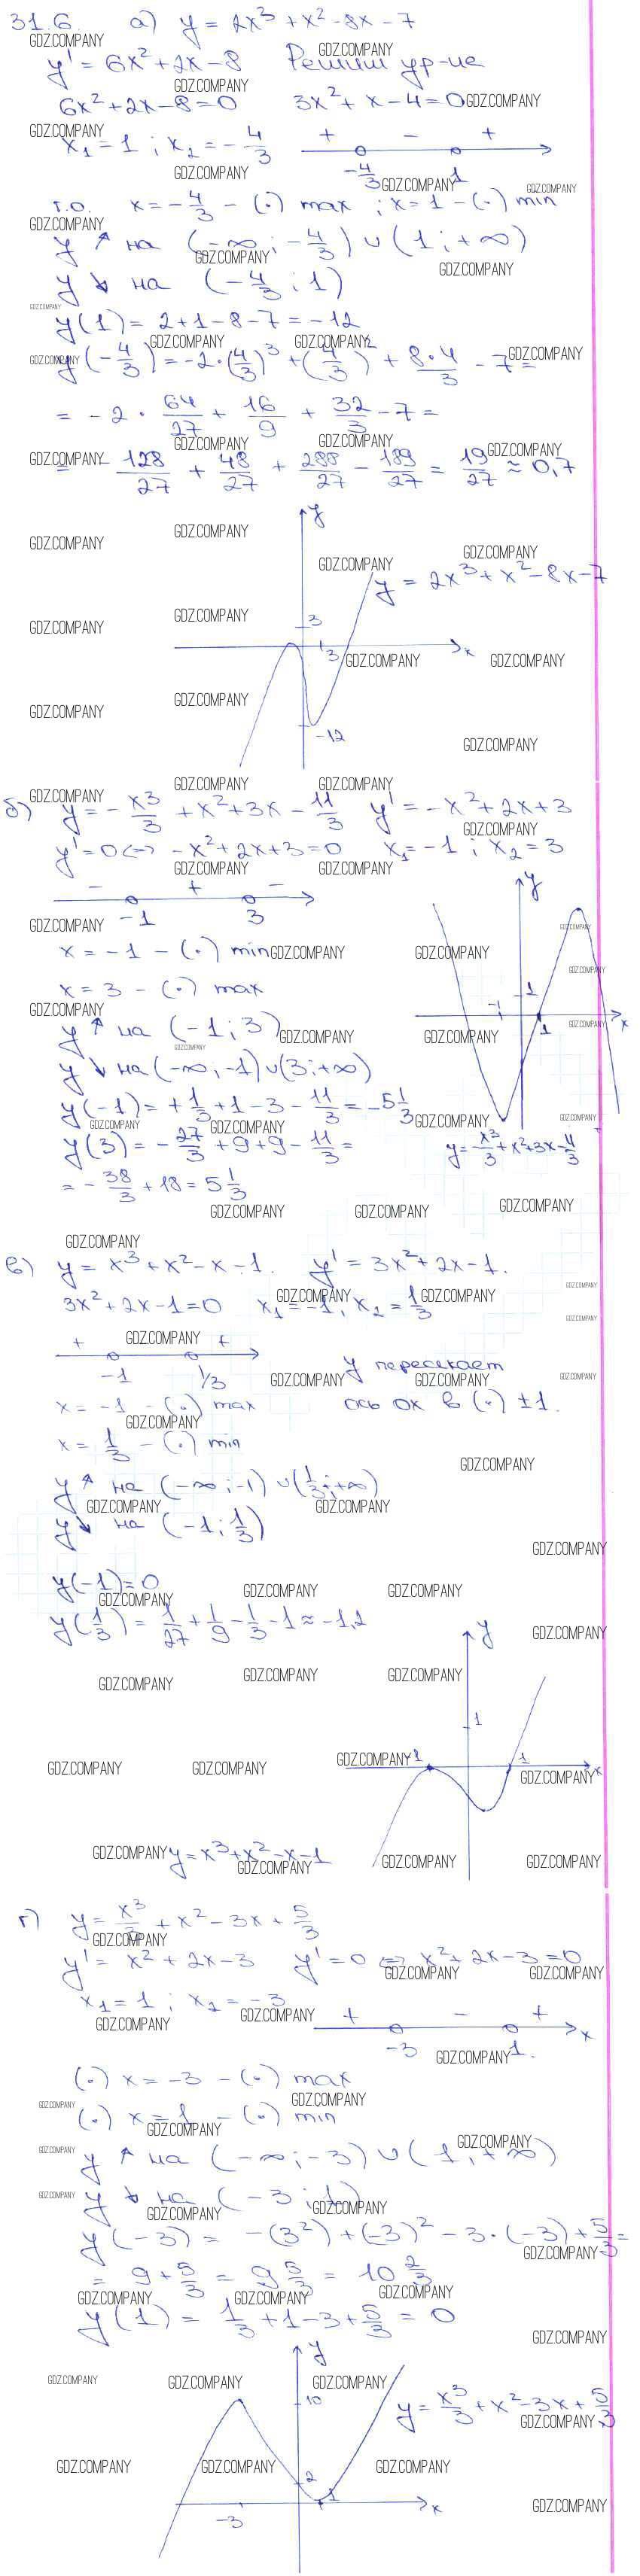 31.6. а) y = 2x³ + x² - 8x - 7
y' = 6x² + 2x - 8 Решим ур-ие
6x² + 2x - 8 = 0 3x² + x - 4 = 0
x₁ = 1 ; x₂ = -4/3
+ - +
-4/3 1
т.о. x = -4/3 - (·) max ; x = 1 - (·) min
y ↑ на (-∞; -4/3) ∪ (1; +∞)
y ↓ на (-4/3; 1)
y(1) = 2 + 1 - 8 - 7 = -12
y(-4/3) = -2·(4/3)³ + (4/3)² + 8·4/3 - 7 =
= -2 · 64/27 + 16/9 + 32/3 - 7 =
= -128/27 + 48/27 + 288/27 - 189/27 = 19/27 ≈ 0,7
y
y = 2x³ + x² - 8x - 7
3
3
x
-12
б) y = -x³/3 + x² + 3x - 11/3 y' = -x² + 2x + 3
y' = 0 <=> -x² + 2x + 3 = 0 x₁ = -1 ; x₂ = 3
- + -
-1 3
x = -1 - (·) min
x = 3 - (·) max
y ↑ на (-1; 3)
y ↓ на (-∞; -1) ∪ (3; +∞)
y(-1) = +1/3 + 1 - 3 - 11/3 = -5 1/3
y(3) = -27/3 + 9 + 9 - 11/3 =
= -38/3 + 18 = 5 1/3
y
1
-1
1
x
y = -x³/3 + x² + 3x - 11/3
в) y = x³ + x² - x - 1. y' = 3x² + 2x - 1.
3x² + 2x - 1 = 0 x₁ = -1, x₂ = 1/3
+ +
-1 1/3
y пересекает
ось OX в (·) ±1.
x = -1 - (·) max
x = 1/3 - (·) min
y ↑ на (-∞; -1) ∪ (1/3; +∞)
y ↓ на (-1; 1/3)
y(-1) = 0
y(1/3) = 1/27 + 1/9 - 1/3 - 1 ≈ -1,2
y
1
-1
1
x
y = x³ + x² - x - 1
г) y = x³/3 + x² - 3x + 5/3
y' = x² + 2x - 3 y' = 0 <=> x² + 2x - 3 = 0
x₁ = 1 ; x₂ = -3
+ - +
-3 1. x
(·) x = -3 - (·) max
(·) x = 1 - (·) min
y ↑ на (-∞; -3) ∪ (1; +∞)
y ↓ на (-3; 1)
y(-3) = -(3²) + (-3)² - 3·(-3) + 5/3 =
= 9 + 5/3 = 9 5/3 = 10 2/3
y(1) = 1/3 + 1 - 3 + 5/3 = 0
y
10
y = x³/3 + x² - 3x + 5/3
2
1
-3
x
GDZ.COMPANY